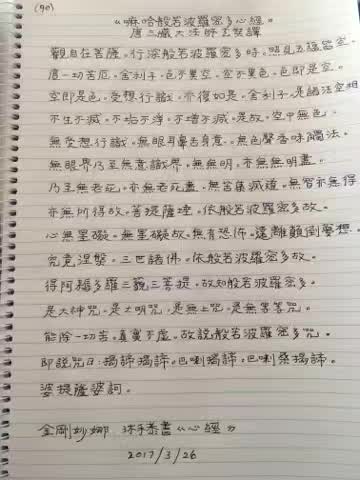 (90)
"嘛哈般若波羅蜜多心經"
唐三藏大法師玄奘譯
觀自在菩薩。行深般若波羅蜜多時。照見五蘊皆空。
度一切苦厄。舍利子。色不異空。空不異色。色即是空。
空即是色。受想行識。亦復如是。舍利子。是諸法空相
不生不滅。不垢不淨。不增不減。是故。空中無色。
無受想行識。無眼耳鼻舌身意。無色聲香味觸法。
無眼界乃至無意識界。無無明。亦無無明盡。
乃至無老死。亦無老死盡。無苦集滅道。無智亦無得
亦無所得故。菩提薩埵。依般若波羅蜜多故。
心無罣礙。無罣礙故。無有恐怖。遠離顛倒夢想。
究竟涅槃。三世諸佛。依般若波羅蜜多故。
得阿耨多羅三藐三菩提。故知般若波羅蜜多。
是大神咒。是大明咒。是無上咒。是無等等咒。
能除一切苦。真實不虛。故說般若波羅蜜多咒。
即說咒曰。揭諦揭諦。巴喇揭諦。巴喇桑揭諦。
婆提薩婆訶。
金剛妙娜 《心經》
2017/3/26